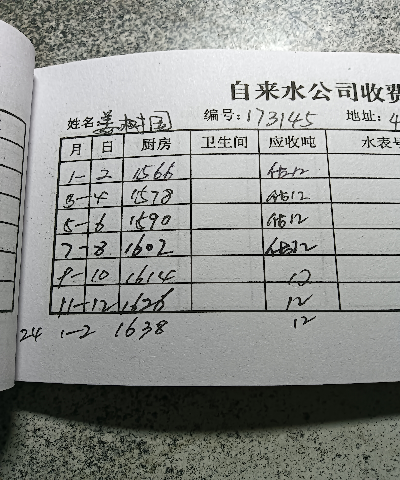 自来水公司收费
姓名 姜树国 编号: 173145 地址: 4
月 日 厨房 卫生间 应收吨 水表号
1-2 1566 12
3-4 1578 12
5-6 1590 12
7-8 1602 12
9-10 1614 12
11-12 1626 12
24 1-2 1638 12